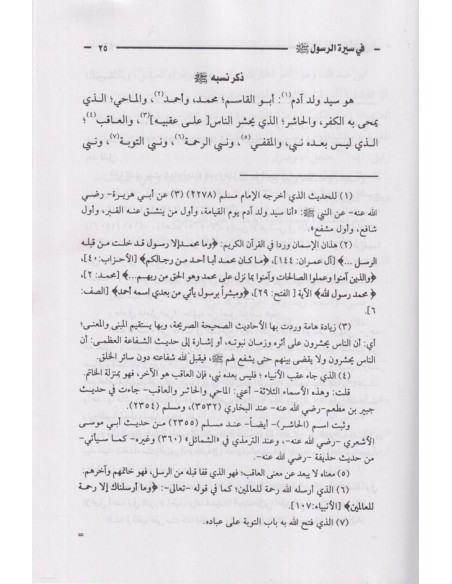 في سيرة الرسول ﷺ ٢٥
ذكر نسبه ﷺ
هو سيد ولد آدم(١): أبو القاسم؛ محمد، وأحمد(٢)، والماحي؛ الذي
يمحى به الكفر، والحاشر؛ الذي يحشر الناس[ على عقبيه](٣)، والعاقب(٤)؛
الذي ليس بعده نبي، والمقفي(٥)، ونبي الرحمة(٦)، ونبي التوبة(٧)، ونبي
(١) للحديث الذي أخرجه الإمام مسلم (٢٢٧٨) (٣) عن أبي هريرة- رضي
الله عنه- عن النبي ﷺ: «أنا سيد ولد آدم يوم القيامة، وأول من ينشق عنه القبر، وأول
شافع، وأول مشفع».
(٢) هذان الإسمان وردا في القرآن الكريم: ﴿وما محمد إلا رسول قد خلت من قبله
الرسل ...﴾ [آل عمران: ١٤٤]، ﴿ما كان محمد أبا أحد من رجالكم﴾ [الأحزاب: ٤٠]،
﴿والذين آمنوا وعملوا الصالحات وآمنوا بما نزل على محمد وهو الحق من ربهم...﴾ [محمد: ٢]،
﴿محمد رسول الله﴾ الآية [الفتح: ٢٩]، ﴿ومبشراً برسول يأتي من بعدي اسمه أحمد﴾ [الصف:
٦].
(٣) زيادة هامة وردت بها الأحاديث الصحيحة الصريحة، وبها يستقيم المبنى والمعنى؛
أي: أن الناس يحشرون على أثره وزمان نبوته، أو إشارة إلى حديث الشفاعة العظمى: أن
الناس يحشرون ولا يقضى بينهم حتى يشفع لهم ﷺ، فيقبل الله شفاعته دون سائر الخلق.
(٤) الذي جاء عقب الأنبياء ؛ فليس بعده نبي، فإن العاقب هو الآخر، فهو بمنزلة الخاتم.
قلت: وهذه الأسماء الثلاثة- أعني: الماحي والحاشر والعاقب- جاءت في حديث
جبير بن مطعم-رضي الله عنه- عند البخاري (٣٥٣٢)، ومسلم (٢٣٥٤).
وثبت اسم (الحاشر)- أيضاً- عند مسلم (٢٣٥٥) من حديث أبي موسى
الأشعري -رضي الله عنه-، وعند الترمذي في «الشمائل» (٣٦٠) وغيره- كما سيأتي-
من حديث حذيفة -رضي الله عنه-.
(٥) معناه لا يبعد عن معنى العاقب؛ فهو الذي قفا قبله من الرسل، فهو خاتمهم وآخرهم.
(٦) الذي أرسله الله رحمة للعالمين؛ كما في قوله -تعالى-: ﴿وما أرسلناك إلا رحمة
للعالمين﴾ [الأنبياء:١٠٧].
(٧) الذي فتح الله به باب التوبة على عباده.
=